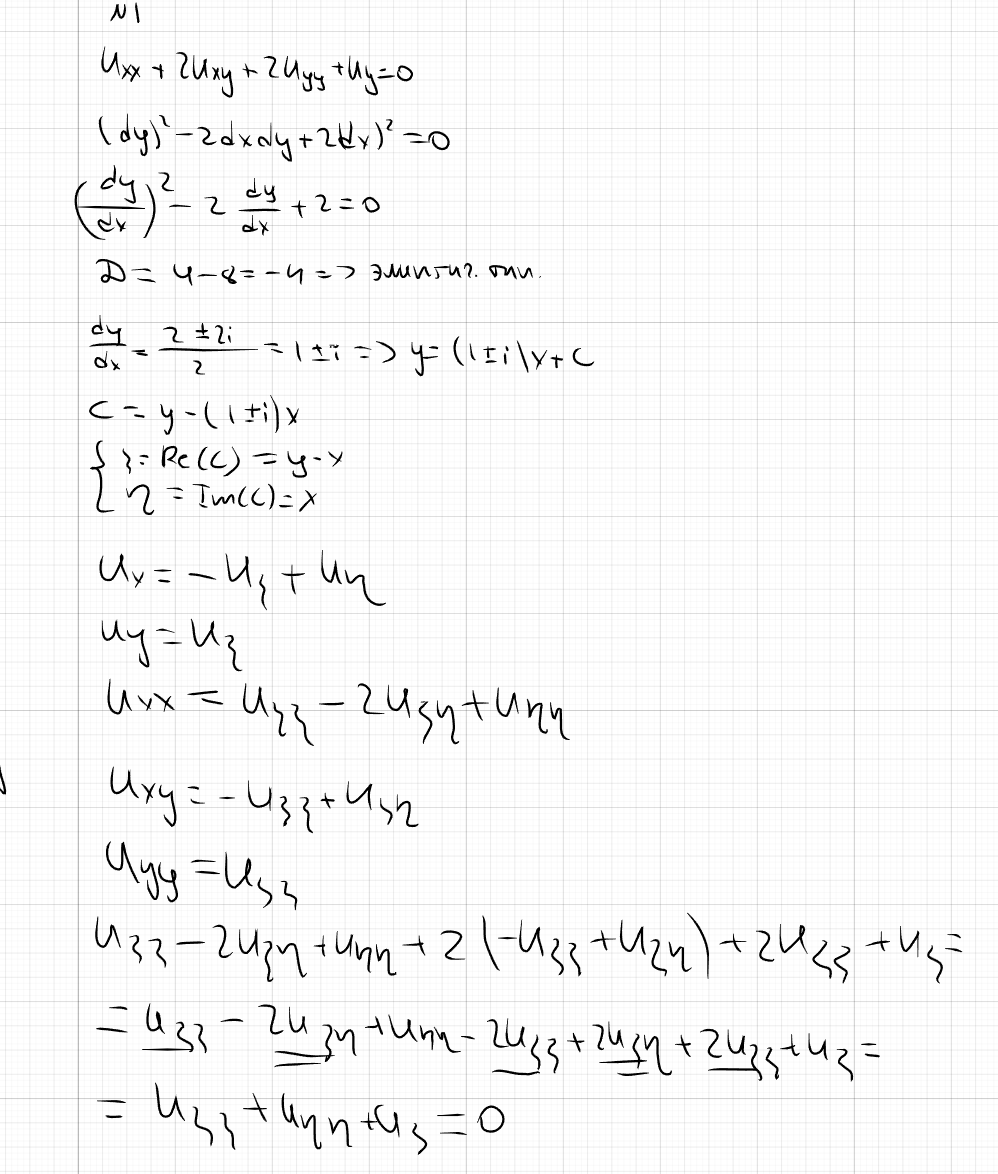 N1
Uxx + 2Uxy + 2Uyy + Uy = 0
(dy)² - 2dxdy + 2(dx)² = 0
(dy/dx)² - 2 dy/dx + 2 = 0
D = 4 - 8 = -4 => элиптич. тип.
dy/dx = (2 ± 2i)/2 = 1 ± i => y = (1 ± i)x + C
C = y - (1 ± i)x
{ ξ = Re(C) = y - x
η = Im(C) = x
Ux = -Uξ + Uη
Uy = Uξ
Uxx = Uξξ - 2Uξη + Uηη
Uxy = -Uξξ + Uξη
Uyy = Uξξ
Uξξ - 2Uξη + Uηη + 2(-Uξξ + Uξη) + 2Uξξ + Uξ =
= Uξξ - 2Uξη + Uηη - 2Uξξ + 2Uξη + 2Uξξ + Uξ =
= Uξξ + Uηη + Uξ = 0